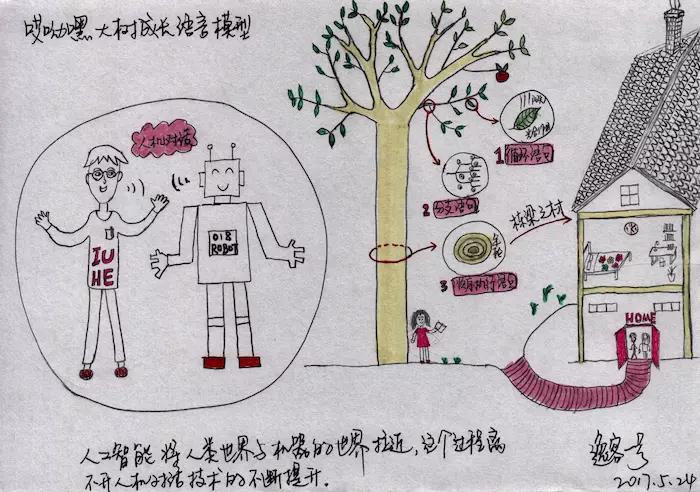 哎呦嘿大树成长语言模型
人机对话
IU
HE
018
ROBOT
1 循环语句
2 分支语句
年轮
3 顺序执行语句
栋梁之材
HOME
人工智能将人类世界与机器的世界拉近,这个过程离
不开人机对话技术的不断提升。
2017.5.24